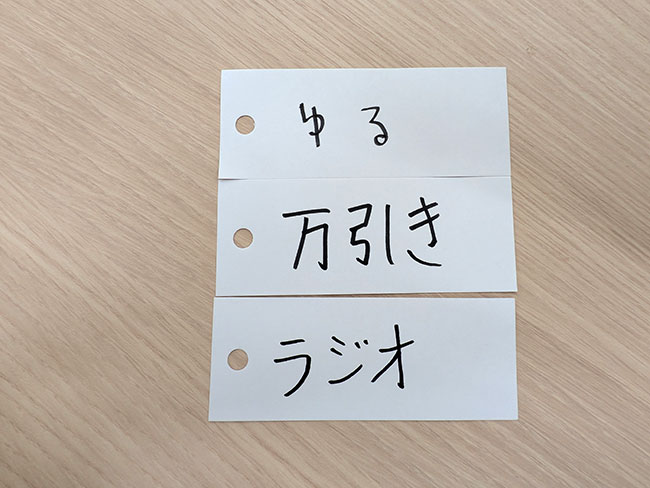 ゆる
万引き
ラジオ